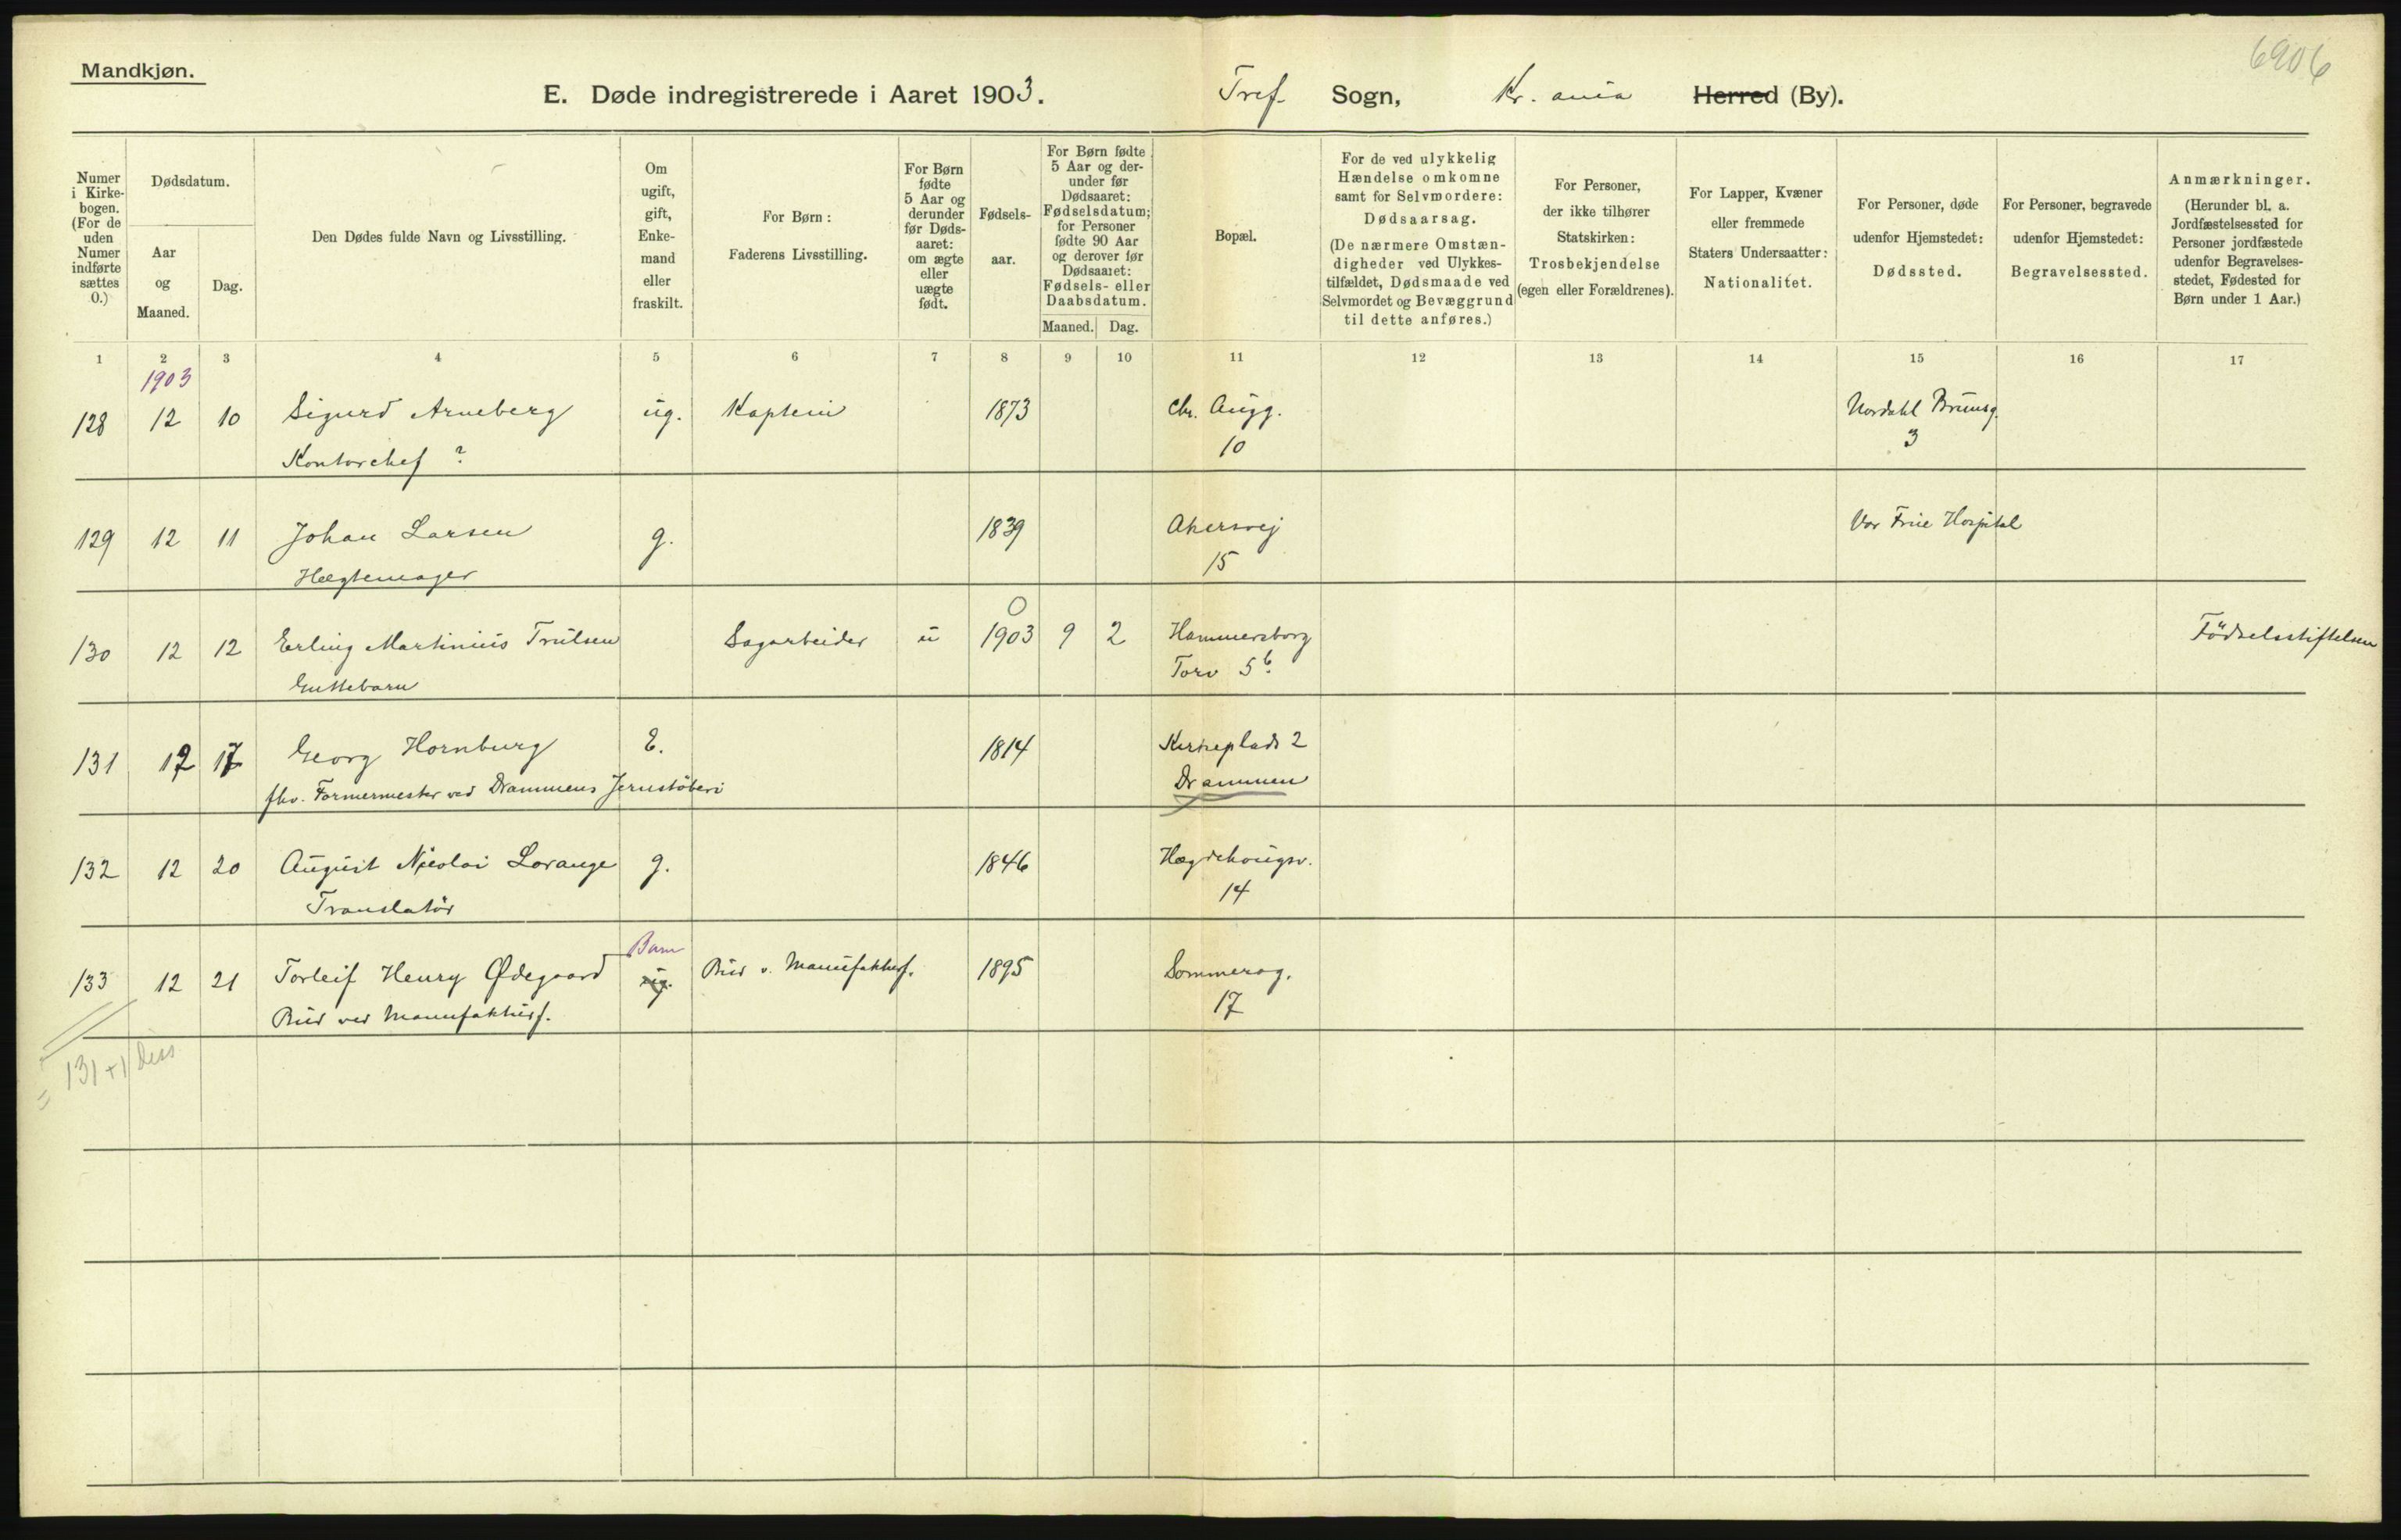 Mandkjøn.
6906
E. Døde indregistrerede i Aaret 1903. Tref. Sogn, Kr.ania Herred (By).
Numer i Kirkebogen. (For de uden Numer indførte sættes 0.)
Dødsdatum.
Aar og Maaned.
Dag.
Den Dødes fulde Navn og Livsstilling.
Om ugift, gift, Enkemand eller fraskilt.
For Børn: Faderens Livsstilling.
For Børn fødte 5 Aar og derunder før Dødsaaret: om ægte eller uægte født.
Fødselsaar.
For Børn fødte 5 Aar og derunder før Dødsaaret: Fødselsdatum; for Personer fødte 90 Aar og derover før Dødsaaret: Fødsels- eller Daabsdatum.
Maaned. Dag.
Bopæl.
For de ved ulykkelig Hændelse omkomne samt for Selvmordere: Dødsaarsag. (De nærmere Omstændigheder ved Ulykkestilfældet, Dødsmaade ved Selvmordet og Bevæggrund til dette anføres.)
For Personer, der ikke tilhører Statskirken: Trosbekjendelse (egen eller Forældrenes).
For Lapper, Kvæner eller fremmede Staters Undersaatter: Nationalitet.
For Personer, døde udenfor Hjemstedet: Dødssted.
For Personer, begravede udenfor Hjemstedet: Begravelsessted.
Anmærkninger. (Herunder bl. a. Jordfæstelsessted for Personer jordfæstede udenfor Begravelsesstedet, Fødested for Børn under 1 Aar.)
1 2 3 4 5 6 7 8 9 10 11 12 13 14 15 16 17
1903
128 12 10 Sigurd Arneberg ug. Kaptein 1873 Chr. Augg. Nordahl Brunsg.
Kontorchef ? 10 3
129 12 11 Johan Larsen g. 1839 Akersvej Vor Frue Hospital
Hægtemager 15
0
130 12 12 Erling Martinius Trulsen Sagarbeider u 1903 9 2 Hammersborg Födselsstiftelsen
Guttebarn Torv 5 b.
131 12 17 Georg Hornburg E. 1814 Kirkeplads 2
fhv. Formermester ved Drammens Jernstöberi Drammen
132 12 20 August Nicolai Lorange g. 1846 Hægdehougsv.
Translatör 14
Barn
133 12 21 Torleif Henry Ødegaard ug. Bud v. Manufakturf. 1895 Sommerog.
Bud ved Manufakturf. 17
= 131 + 1